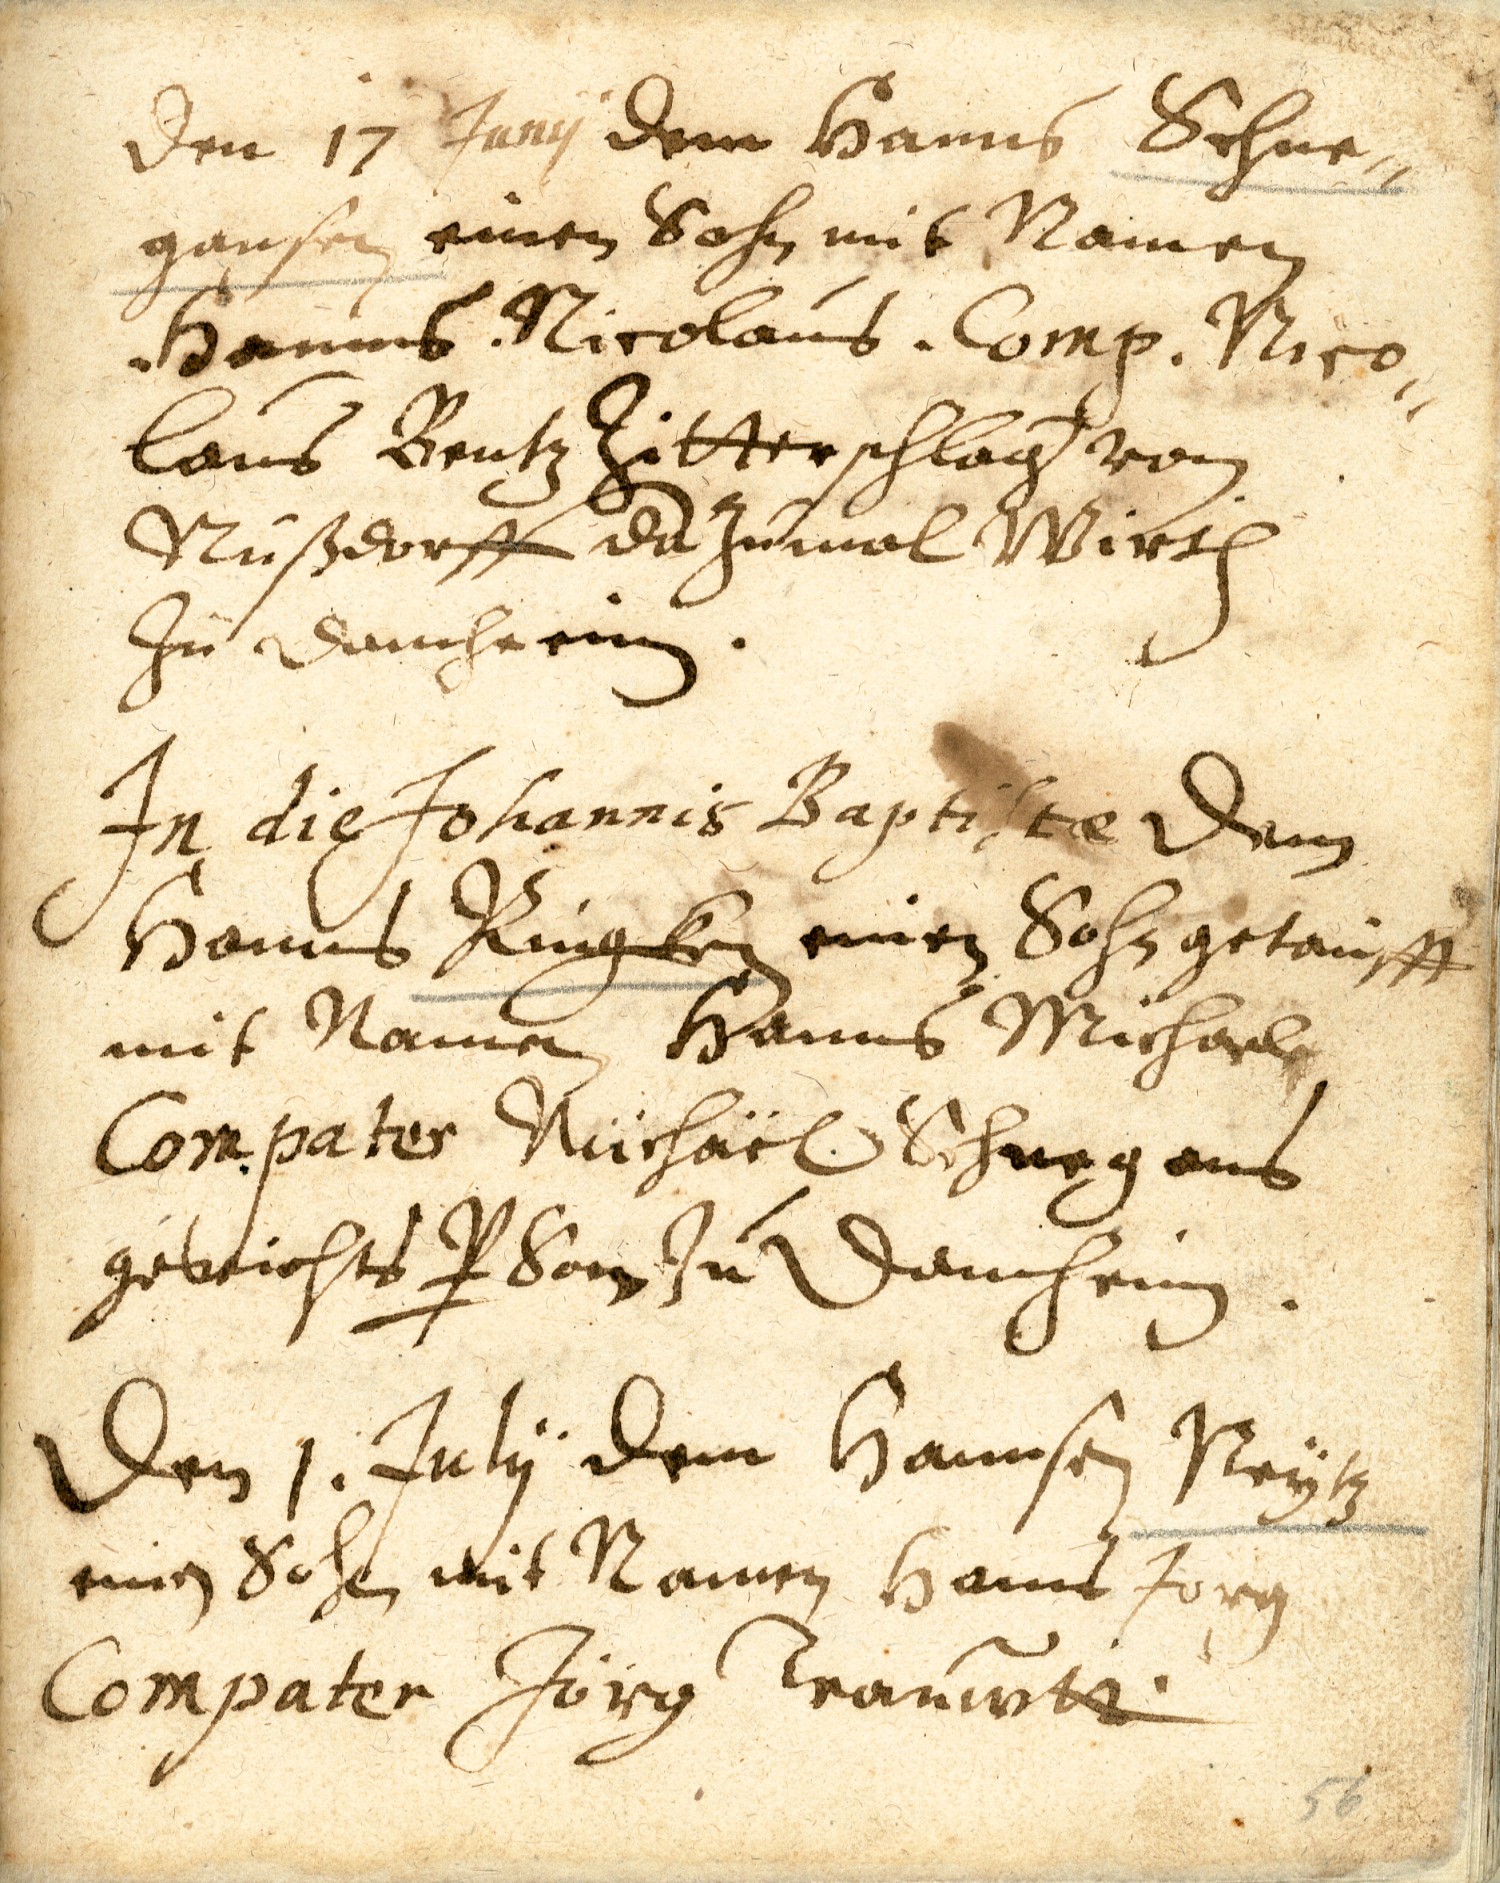 Den 17 Junij dem Hanns Schne„
gansen einen Sohn mit Namen
.Hanns .Nicolaus . Comp. Nico„
laus Bentz Zitterschlag von
Nußdorff da Zumal Wirth
Zu Damheim.
In die Johannis Baptistæ Dem
Hanns Ringken einen Sohn getaufft
mit Namen Hanns Michaele
Compater Michaël Schnegans
gerichts PSon Zu Damheim.
Den 1. Julij dem Hannsen Reÿtz
einen Sohn mit Namen Hanns Jorg
Compater Jörg Trauwtt.
56